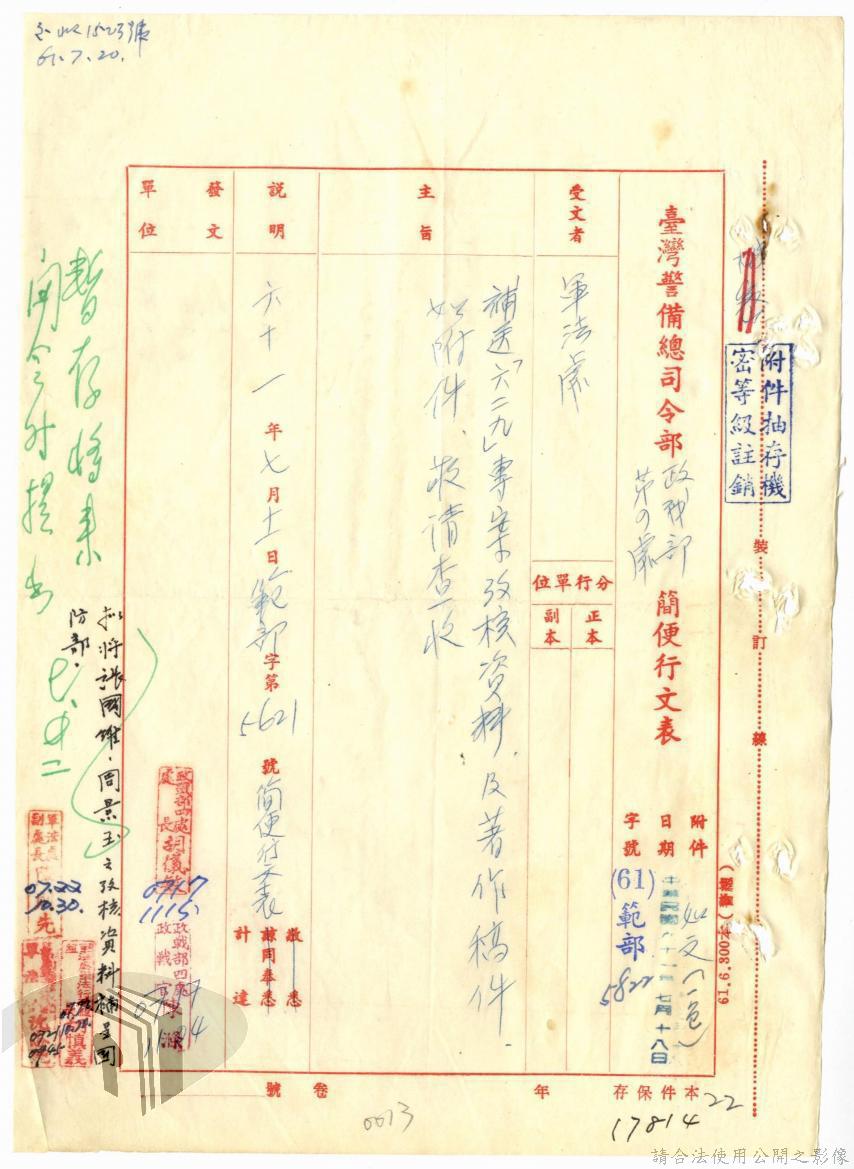 61.7.20.
附件抽存機
密等級註銷
裝訂線
臺灣警備總司令部
政戰部
第四處
簡便行文表
附件
如文(一包)
日期
中華民國六十一年七月十八日
字號
(61)範部
5822
61.6.800本
受文者
軍法處
分行單位
正本
副本
主旨
補送「六二九」專案攷核資料、及著作稿件.
如附件、敬請查收
說明
六十一年七月十一日範部字第5621號簡便行文表
敬悉
計達
發文單位
政戰部四處
處長
0717
1115
政戰部四處
政戰官
暫存將來
閱令時提出
擬將張國雄、周景玉之攷核資料補呈國
防部.
軍法處
副處長
07.22
10.30.
本件保存年卷號
22
17814
0013
請合法使用公開之影像